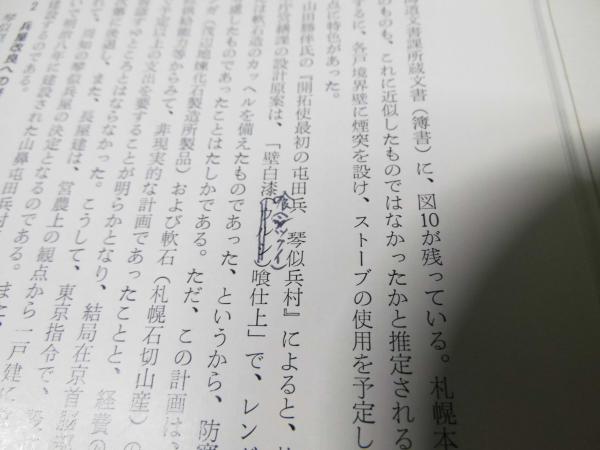 道文書課所蔵文書（簿書）に、図10が残っている。札幌本
のものも、これに近似したものではなかったかと推定される
するに、各戸境界壁に煙突を設け、ストーブの使用を予定し
点に特色があった。
山田勝伴氏の『開拓使最初の屯田兵　琴似兵村』によると、
庁営繕課の設計原案は、「壁白漆喰（シックイ）喰仕上」で、レン
は軟石造のカッヘルを備えたものであった、というから、防寒
慮したものであったことはたしかである。ただ、この計画は、
煉化石製造所製品）および軟石（札幌石切山産）の
供給能力等からみて、非現実的な計画であったことと、経費の
予定以上の支出を要することが明らかとなり、結局在京首脳部
に後退し、また、長屋建は、営農上の観点から一戸建に
ところとはならなかった。こうして、東京指令で、
て、周知の琴似兵屋の決定となるのである。また、
明治八年に建設された山鼻屯田兵村
建設するのである。
2　兵屋改良への
琴似